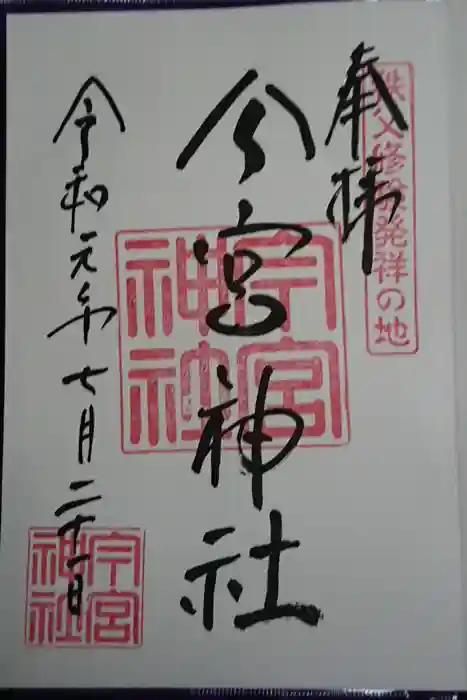 秩父修験発祥の地
奉拝
今宮神社
今宮
神社
令和元年七月二十一日
今宮
神社